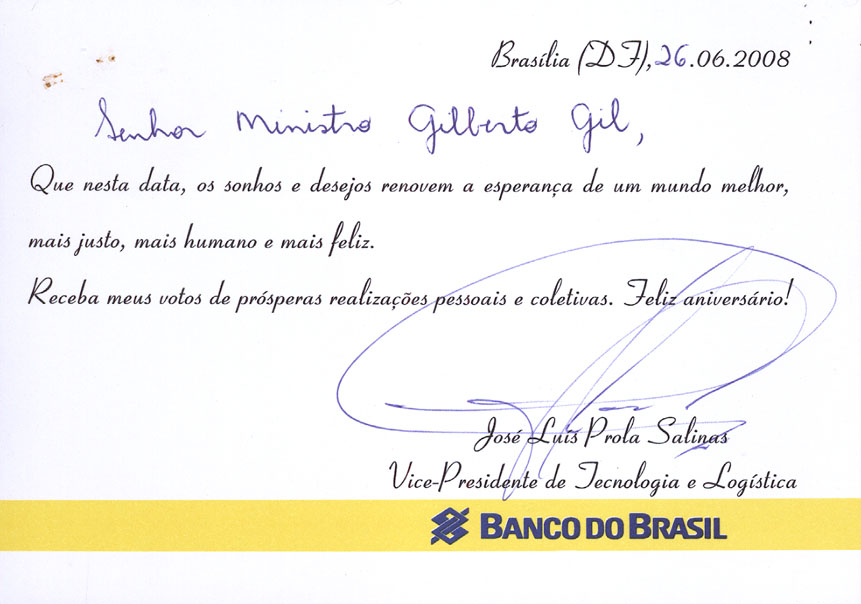 Brasília (DF), 26.06.2008
Senhor Ministro Gilberto Gil,
Que nesta data, os sonhos e desejos renovem a esperança de um mundo melhor,
mais justo, mais humano e mais feliz.
Receba meus votos de prósperas realizações pessoais e coletivas. Feliz aniversário!
José Luis Prola Salinas
Vice-Presidente de Tecnologia e Logística
BANCO DO BRASIL